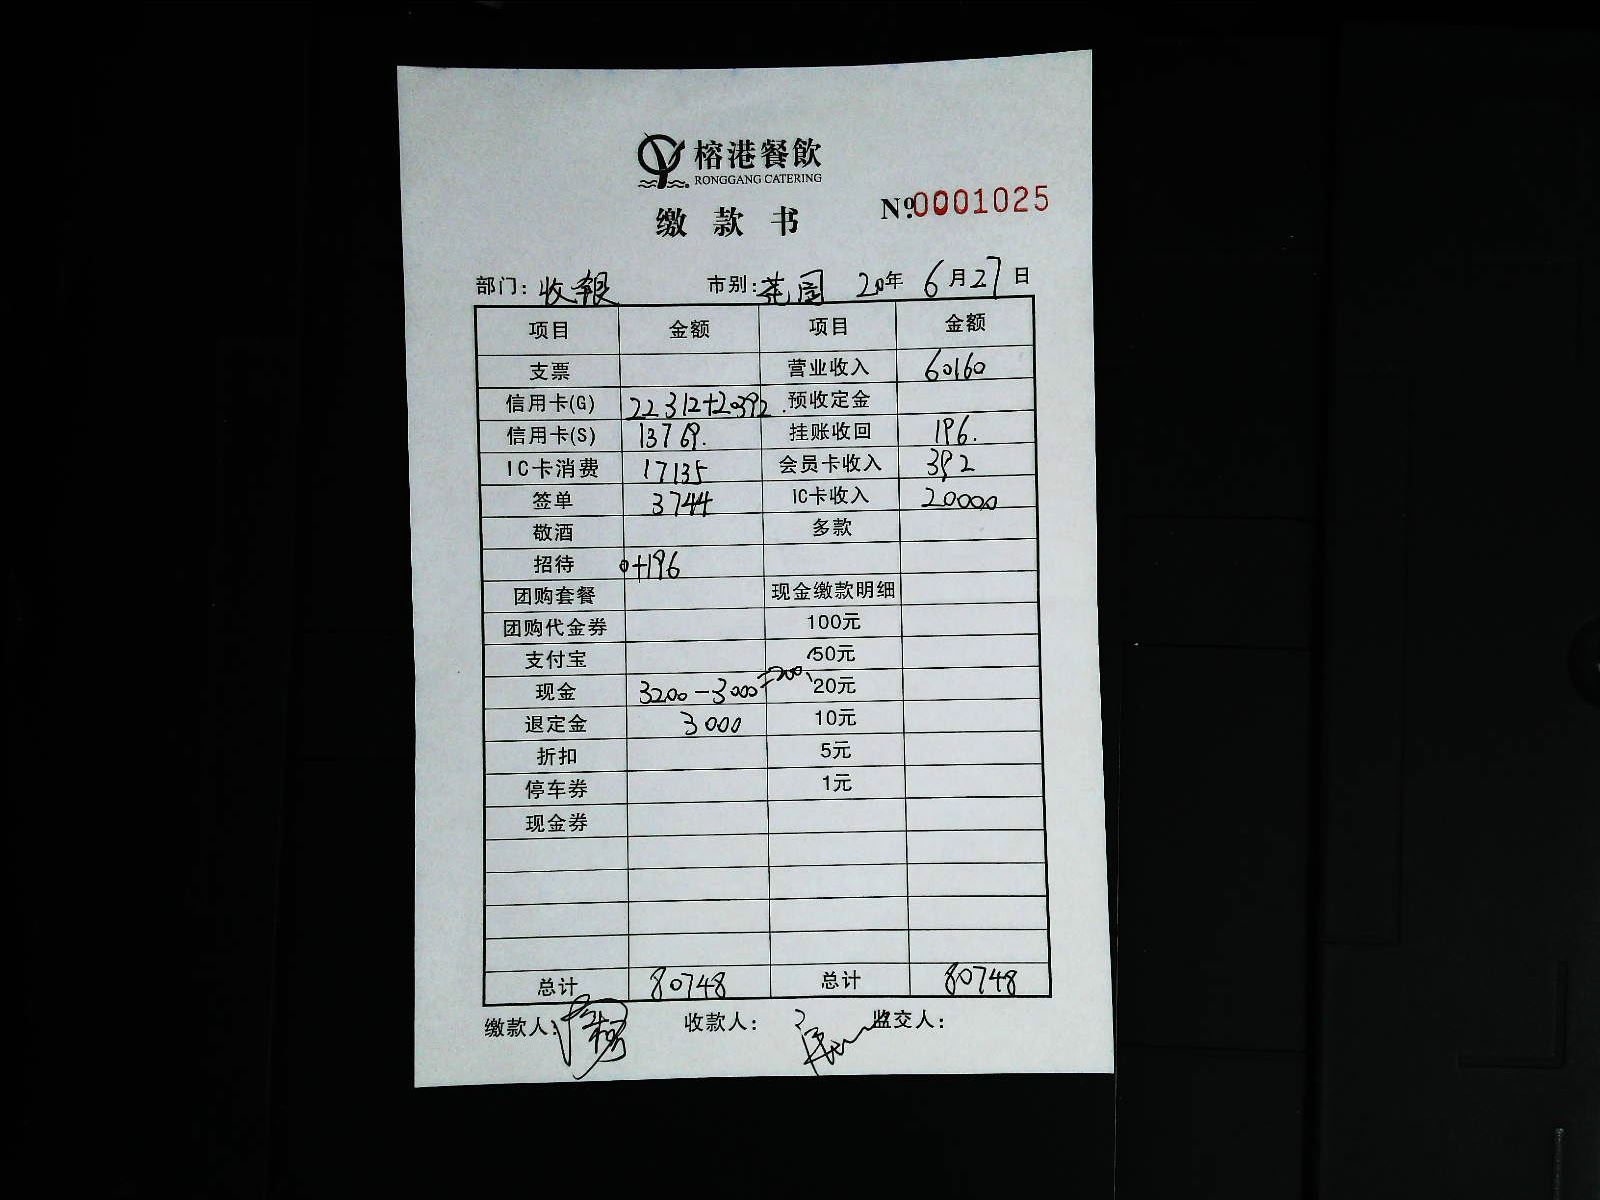 榕港餐飲
RONGGANG CATERING
缴款书 Nº.0001025
部门: 收银 市别: 花园 20年 6月27日
项目 金额 项目 金额
支票 营业收入 60160
信用卡(G) 22312+20392. 预收定金
信用卡(S) 13769. 挂账收回 196.
IC卡消费 17135 会员卡收入 392
签单 3744 IC卡收入 20000
敬酒 多款
招待 0+196
团购套餐 现金缴款明细
团购代金券 100元
支付宝 50元
现金 3200-3000=200 20元
退定金 3000 10元
折扣 5元
停车券 1元
现金券
总计 80748 总计 80748
缴款人: 收款人: 监交人: